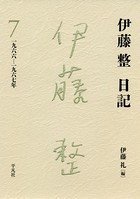 伊藤 整 日記
7
一九六六―一九六七年
伊藤整
伊藤 礼 編
平凡社